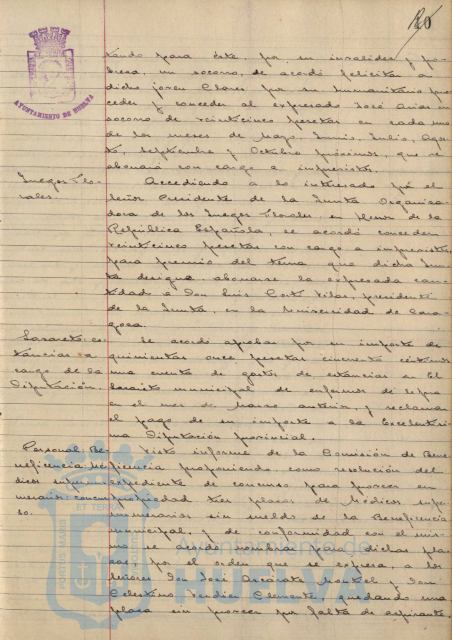 20
AYUNTAMIENTO DE HUELVA
tando para éste, por su invalidez y po-
breza, un socorro, se acordó felicitar a
dicho joven Clares por su humanitario pro-
ceder y conceder al expresado José Arias un
socorro de veinticinco pesetas en cada uno
de los meses de Mayo, Junio, Julio, Agos-
to, Septiembre y Octubre próximos, que se
abonará con cargo a imprevistos.
Juegos Flo-
rales.
Accediendo a lo interesado por el
Señor Presidente de la Junta Organiza-
dora de los Juegos Florales, en plenor de la
República Española, se acordó conceder
veinticinco pesetas con cargo a imprevistos
para premio del tema que dicha Jun-
ta designe, abonarse la expresada can-
tidad a Don Luis Vilas, presidente
de la Junta, en la Universidad de Zara-
goza.
Lazareto: es-
tancias a
cargo de la
Diputación.
Se acordó aprobar por su importe de
quinientas once pesetas cincuenta céntimos
una cuenta de gastos de estancias en el
Lazareto municipal de enfermos de lepra
en el mes de Marzo anterior, y reclamar
el pago de su importe a la Excelentísi-
ma Diputación provincial.
Personal: Be-
neficencia: Mé-
dicos supernu-
merarios: concur-
so.
Visto informe de la Comisión de Bene-
ficencia proponiendo, como resolución del
expediente de concurso para proveer en
propiedad tres plazas de Médicos super-
numerarios sin sueldo de la Beneficencia
municipal, y de conformidad con el mis-
mo se acordó nombrar para dichas pla-
zas por el orden que se expresa, a los
Señores Don José Azcárate y Don
Celestino Verdier Clemente, quedando una
plaza sin proveer por falta de aspirante,
PORTUS MARIS
ET TERRAE
Ayuntamiento de
HUELVA